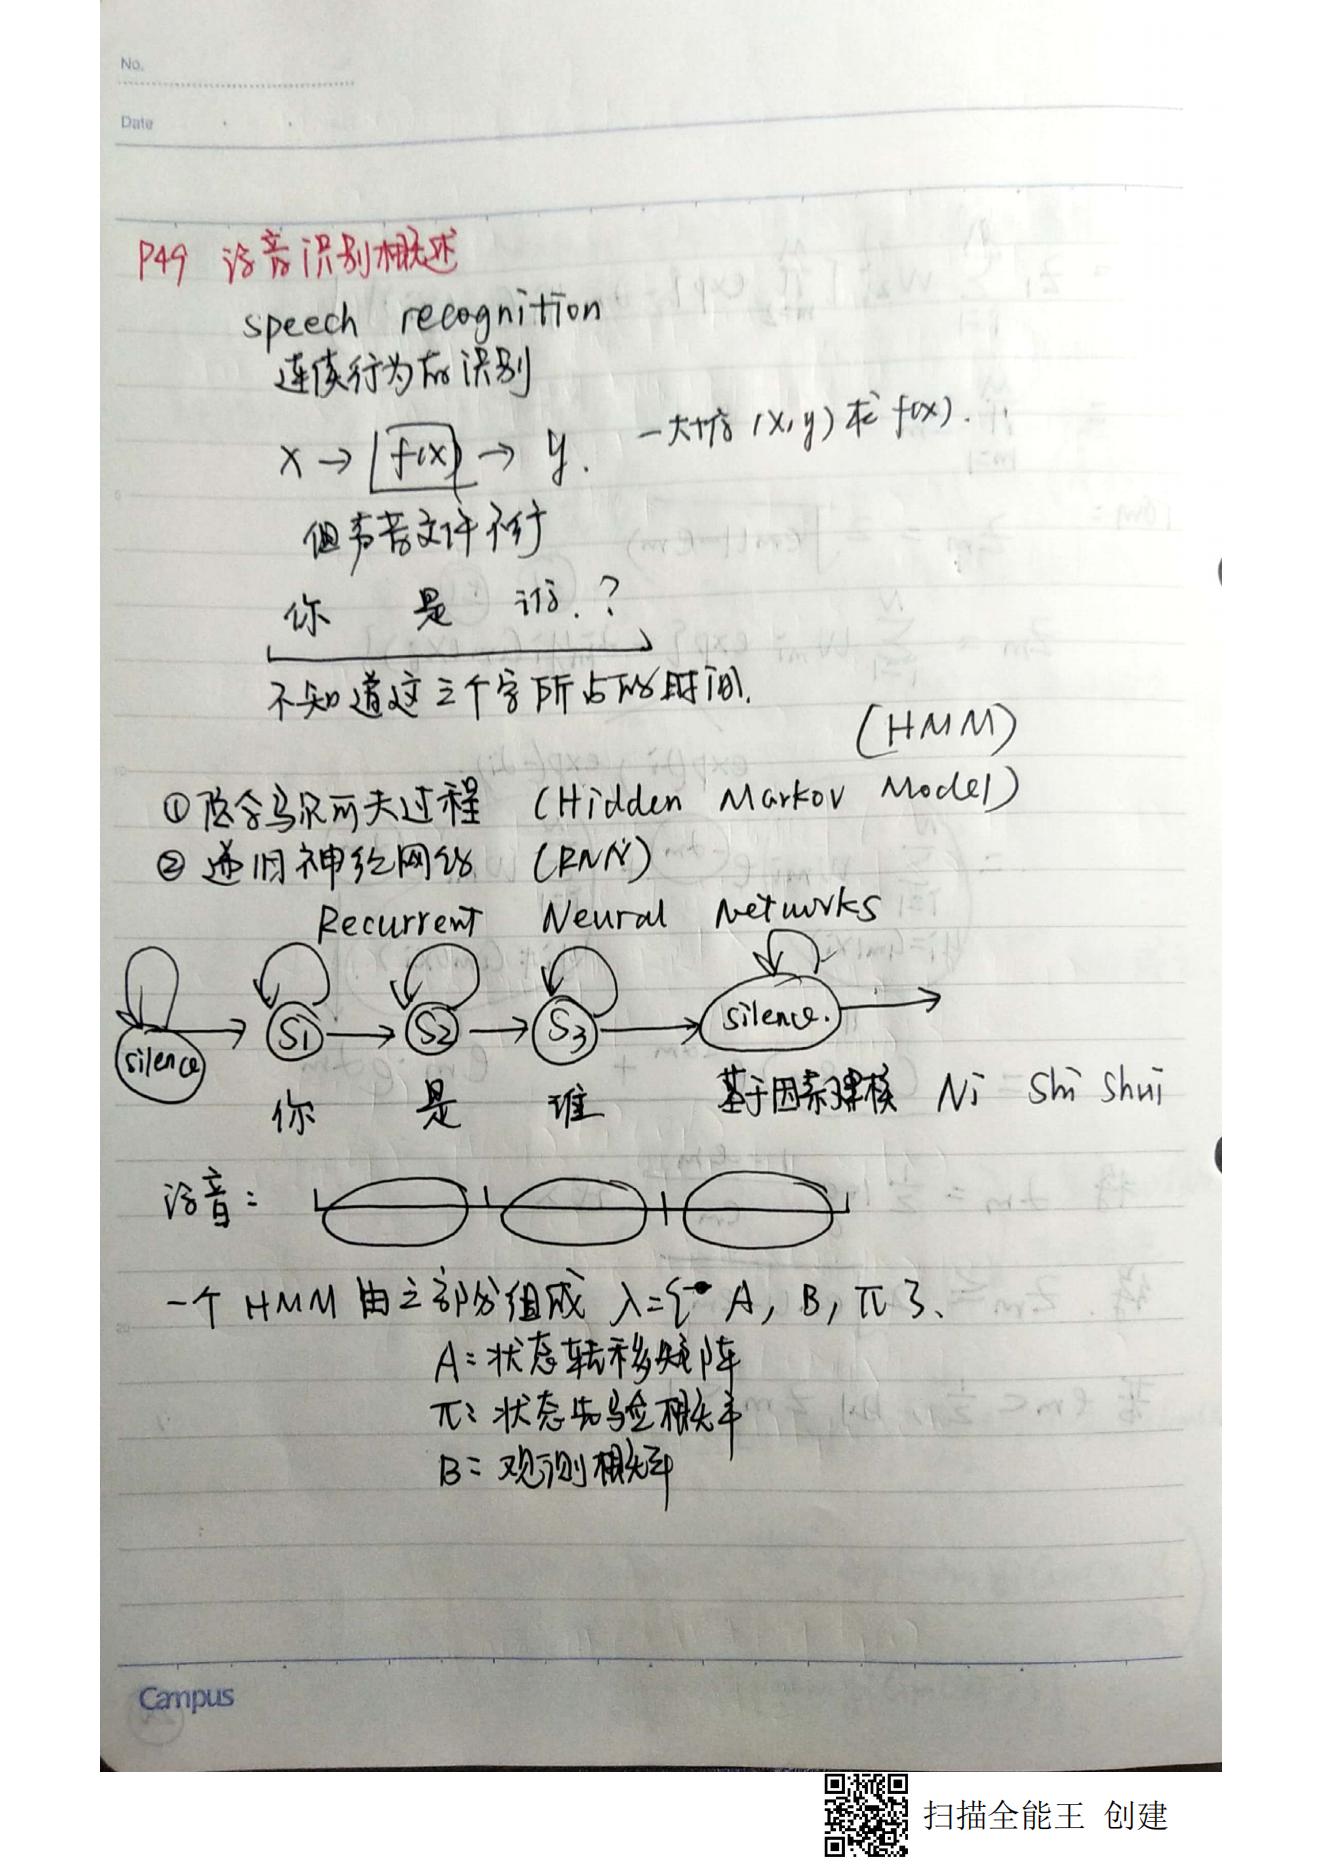 No.
Date
P49 语音识别概述
speech recognition
连续行为的识别
x → f(x) → y. 一大堆 (x,y) 求 f(x).
但声音文件不行
你 是 谁.?
不知道这三个字所占的时间.
(HMM)
①隐含马尔可夫过程 (Hidden Markov Model)
②递归神经网络 (RNN)
Recurrent Neural Networks
silence → S1 → S2 → S3 → silence. →
你 是 谁 基于因素建模 Ni Shi Shui
语音:
一个 HMM 由三部分组成 λ={ A, B, π }.
A: 状态转移矩阵
π: 状态先验概率
B: 观测概率
Campus
扫描全能王 创建